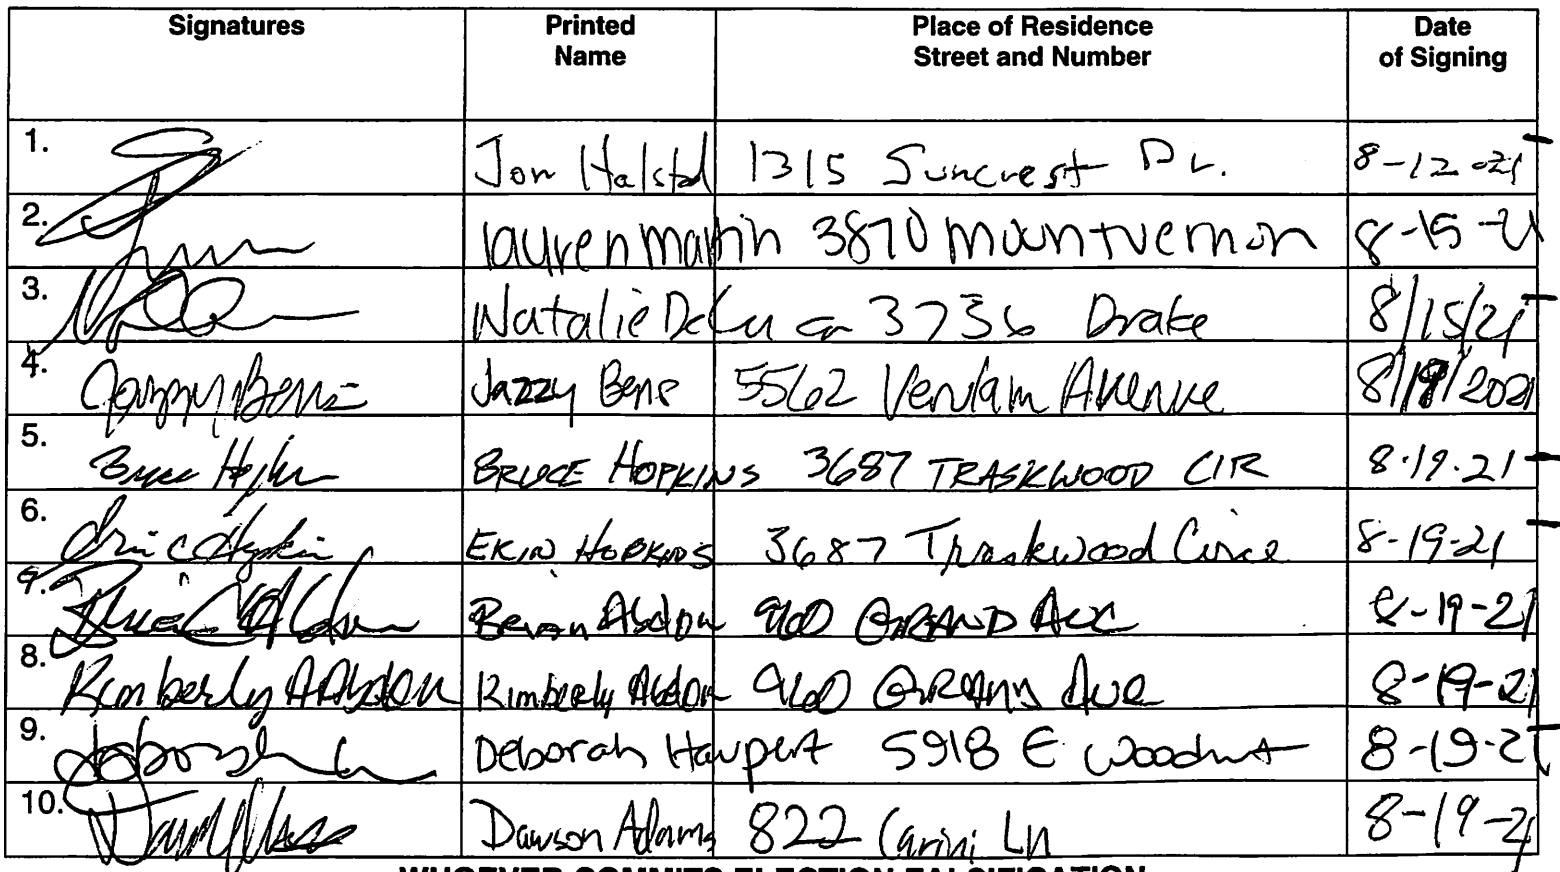 Signatures Printed Name Place of Residence Street and Number Date of Signing
1. Jon Halstd 1315 Suncrest Dr. 8-12-21
2. Lauren Martin 3870 Mountvernon 8-15-21
3. Natalie 3736 Drake 8/15/21
4. Jazzy Bens Jazzy Bens 5562 Verulam Avenue 8/19/2021
5. Bruce Hopkins BRUCE HOPKINS 3687 TRASKWOOD CIR 8.19.21
6. ERIN HOPKINS 3687 Traskwood Circe 8-19-21
7. Brian Abdon 960 GRAND AVE 8-19-21
8. Kimberly A Abdon Kimberly Abdon 960 GRAND AVE 8-19-21
9. Deborah Haupert 5918 E Woodmont 8-19-21
10. Dawson Adams 822 Carini Ln 8-19-21
WHOEVER COMMITS ELECTION FALSIFICATION